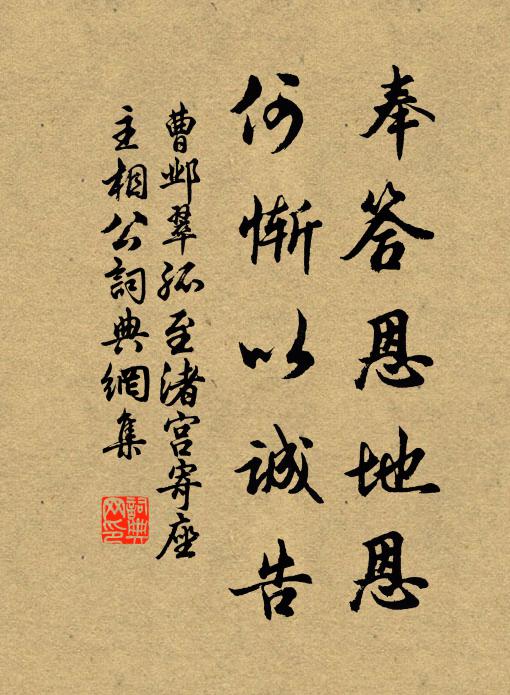 奉答恩地恩
何惭以诚告
曹邺翠孤至渚宫寄座
主相公詞典網集
詞典
网印